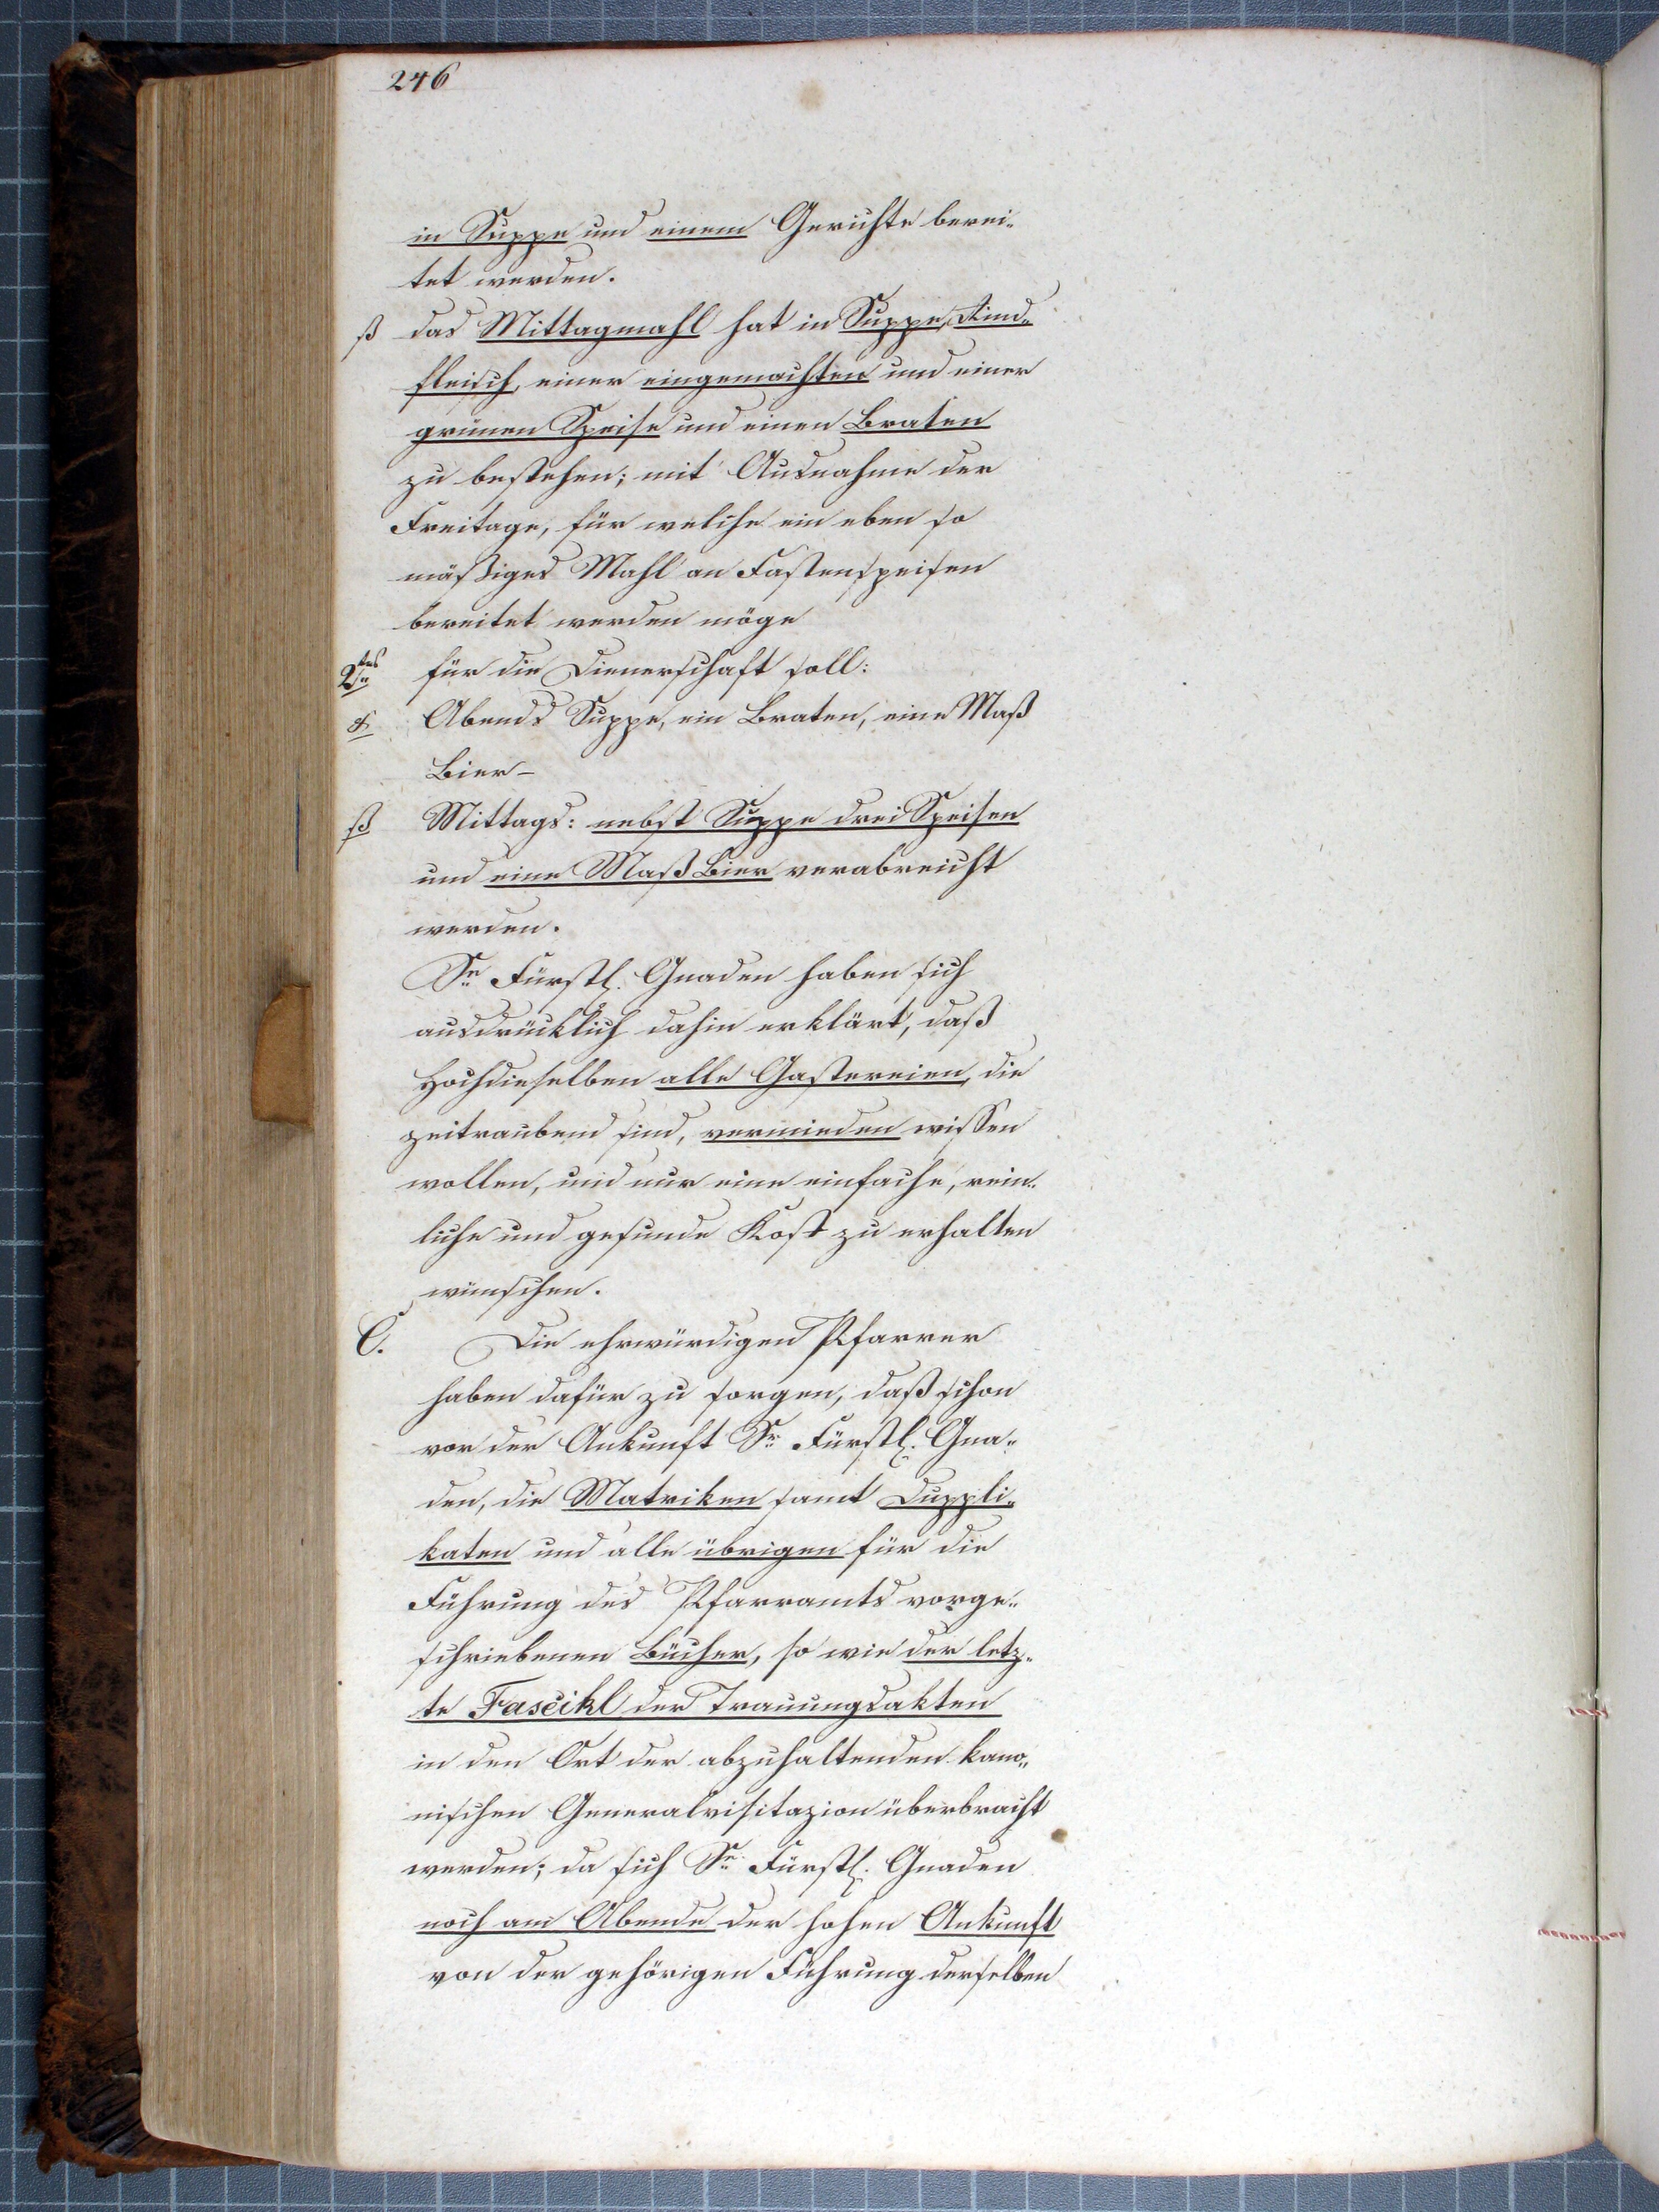 246
in Suppe und einem Gerichte berei-
tet werden.
ß das Mittagmahl hat in Suppe, Rind-
fleisch, einer eingemachten und einer
grünen Speise und einen Braten
zu bestehen; mit Ausnahme der
Freitage, für welche ein eben so
mäßiges Mahl an Fastenspeisen
bereitet werden möge
2tens für die Dienerschaft soll:
Abends Suppe, ein Braten, eine Maß
Bier-
ß Mittags: nebst Suppe drei Speisen
und eine Maß Bier verabreicht
werden.
Se Fürstl. Gnaden haben sich
ausdrücklich dahin erklärt, daß
Hochdieselben alle Gastereien, die
zeitraubend sind, vermieden wissen
wollen, und nur eine einfache, rein-
liche und gesunde Kost zu erhalten
wünschen.
C. Die ehrwürdigen Pfarrer
haben dafür zu sorgen, daß schon
vor der Ankunft Sr Fürstl. Gna-
den, die Matriken samt Duppli-
katen und alle übrigen für die
Führung des Pfarramts vorge-
schriebenen Bücher, so wie der letz-
te Fascikl der Trauungsakten
in den Ort der abzuhaltenden kano-
nischen Generalvisitazion überbracht
werden; da sich Se Fürstl. Gnaden
noch am Abende der hohen Ankunft
von der gehörigen Führung derselben